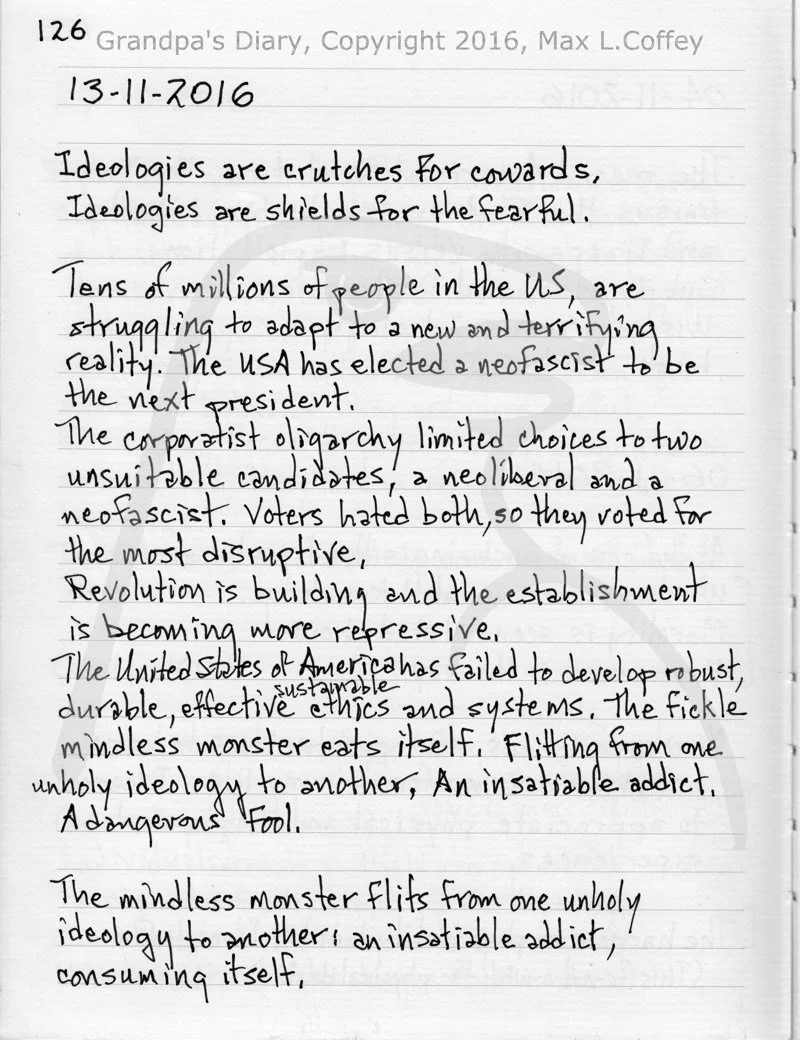 126
Grandpa's Diary, Copyright 2016, Max L.Coffey
13-11-2016
Ideologies are crutches for cowards,
Ideologies are shields for the fearful.
Tens of millions of people in the US, are
struggling to adapt to a new and terrifying
reality. The USA has elected a neofascist to be
the next president.
The corporatist oligarchy limited choices to two
unsuitable candidates, a neoliberal and a
neofascist. Voters hated both, so they voted for
the most disruptive,
Revolution is building and the establishment
is becoming more repressive.
The United States of America has failed to develop robust,
sustainable
durable, effective ethics and systems. The fickle
mindless monster eats itself. Flitting from one
unholy ideology to another, An insatiable addict.
A dangerous Fool.
The mindless monster flits from one unholy
ideology to another: an insatiable addict,
consuming itself.